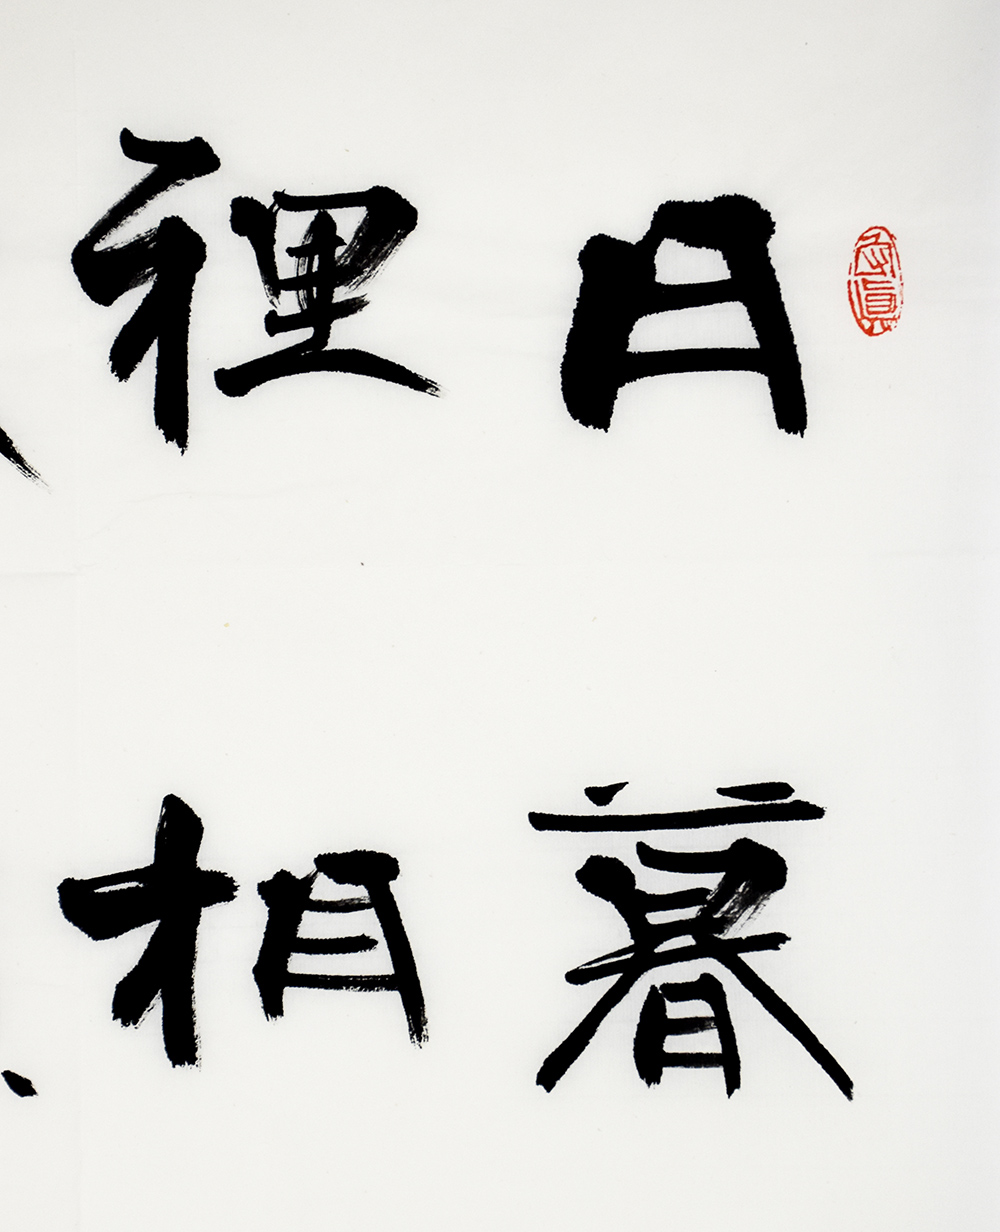 日暮
裡相